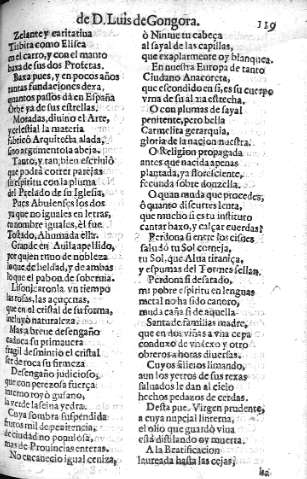 de D. Luis de Gongora.
119
Zelante y caritatiua
Tisbita como Elisea
en el carro, y con el manto
baxa de sus dos Profetas.
Baxa pues, y en pocos años
tantas fundaciones dexa,
quantos passos dà en España
Orbe ya de sus estrellas.
Moradas, diuino el Arte,
y celestial la materia
fabricò Arquitecta alada,
sino argumentosa abeja.
Tanto, y tan bien escriuiò
que podrà correr parejas
su espiritu con la pluma
del Prelado de su Iglesia,
Pues Abulenses los dos
ya que no iguales en letras,
en nombre iguales, èl fue
Tostado, Ahumada ella.
Grande en Auila apellido,
por quien
que de beldad, y de ambas
lo que el pabon de soberuia.
Lisonjearonla vn tiempo
las rosas, las açuçenas,
que en el cristal de su forma,
incluyò naturaleza.
Mas a breue desengaño
caduca su primauera
fragil desmintiò el cristal
ser de roca su firmeza
Desengaño judicioso,
que con perezosa fuerça
interno royò gusano,
la verde lasciua yedra.
Cuya sombra suspendida
frutos mil de penitencia,
de ciudad no populosa,
mas de Prouincias enteras.
No encaneciò igual ceniza,
ò Niniue tu cabeça
al sayal de las capillas,
que exaplarmente oy blanquea.
En nuestra Europa de tanto
Ciudano Anacoreta,
que escondido en si, es su cuerpo
vrna de su alma estrecha.
O con plumas de sayal
penitente, pero bella
Carmelita gerarquia,
gloria de la nacion nuestra.
O Religion propagada
antes que nacida apenas
plantada, ya floreciente,
fecunda sobre donzella.
O quan muda que procedes,
ò quanto discurres lenta,
que mucho si es tu instituto
cantar baxo, y calçar cuerdas?
Perdona si entre los cisnes
saludò tu Sol corneja,
tu Sol, que Alua tiraniça,
y espumas del Tormes sellan.
Perdona si desatado,
mi pobre espiritu en lenguas
metal no ha sido canoro,
muda caña si de aquella.
Santa de familias madre,
que en dos viñas a vna cepa
conduxo de vn sexo y otro
obreros a horas diuersas.
Cuyos silicios limando,
aun los yerros de sus rexas
saluados le dan al cielo
hechos pedaços de cerdas.
Desta pues Virgen prudente,
a cuya nupcial linterna,
el olio que guardò viua
està distilando oy muerta.
A la Beatificacion
laureada hasta las cejas,